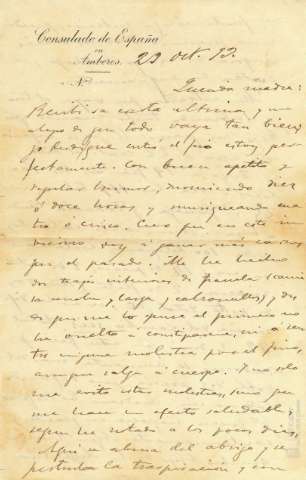 Consulado de España
en
Amberes.
Nº
29 oct. 93.
Querida madre:
Recibí su carta última, y me
alegro de que todo vaya tan bien;
yo aunque entró el frío estoy per-
fectamente. Con buen apetito y
regular humor, durmiendo diez
ó doce horas y musiqueando cua
tro ó cinco. Creo que en este in
vierno voy á ganar más carnes
que el pasado. Me he hecho
dos trajes interiores de franela (cami
sa ancha y larga y calzoncillos), y des
de que me lo puse el primero no
he vuelto á constiparme, ni á sen
tir ninguna molestia por el frío,
aunque salga á cuerpo. Y no solo
me evita estas molestias, sino que
me hace un efecto saludable,
según he notado á los pocos días.
Aquí se abusa del abrigo, y se
perturba la traspiración y con